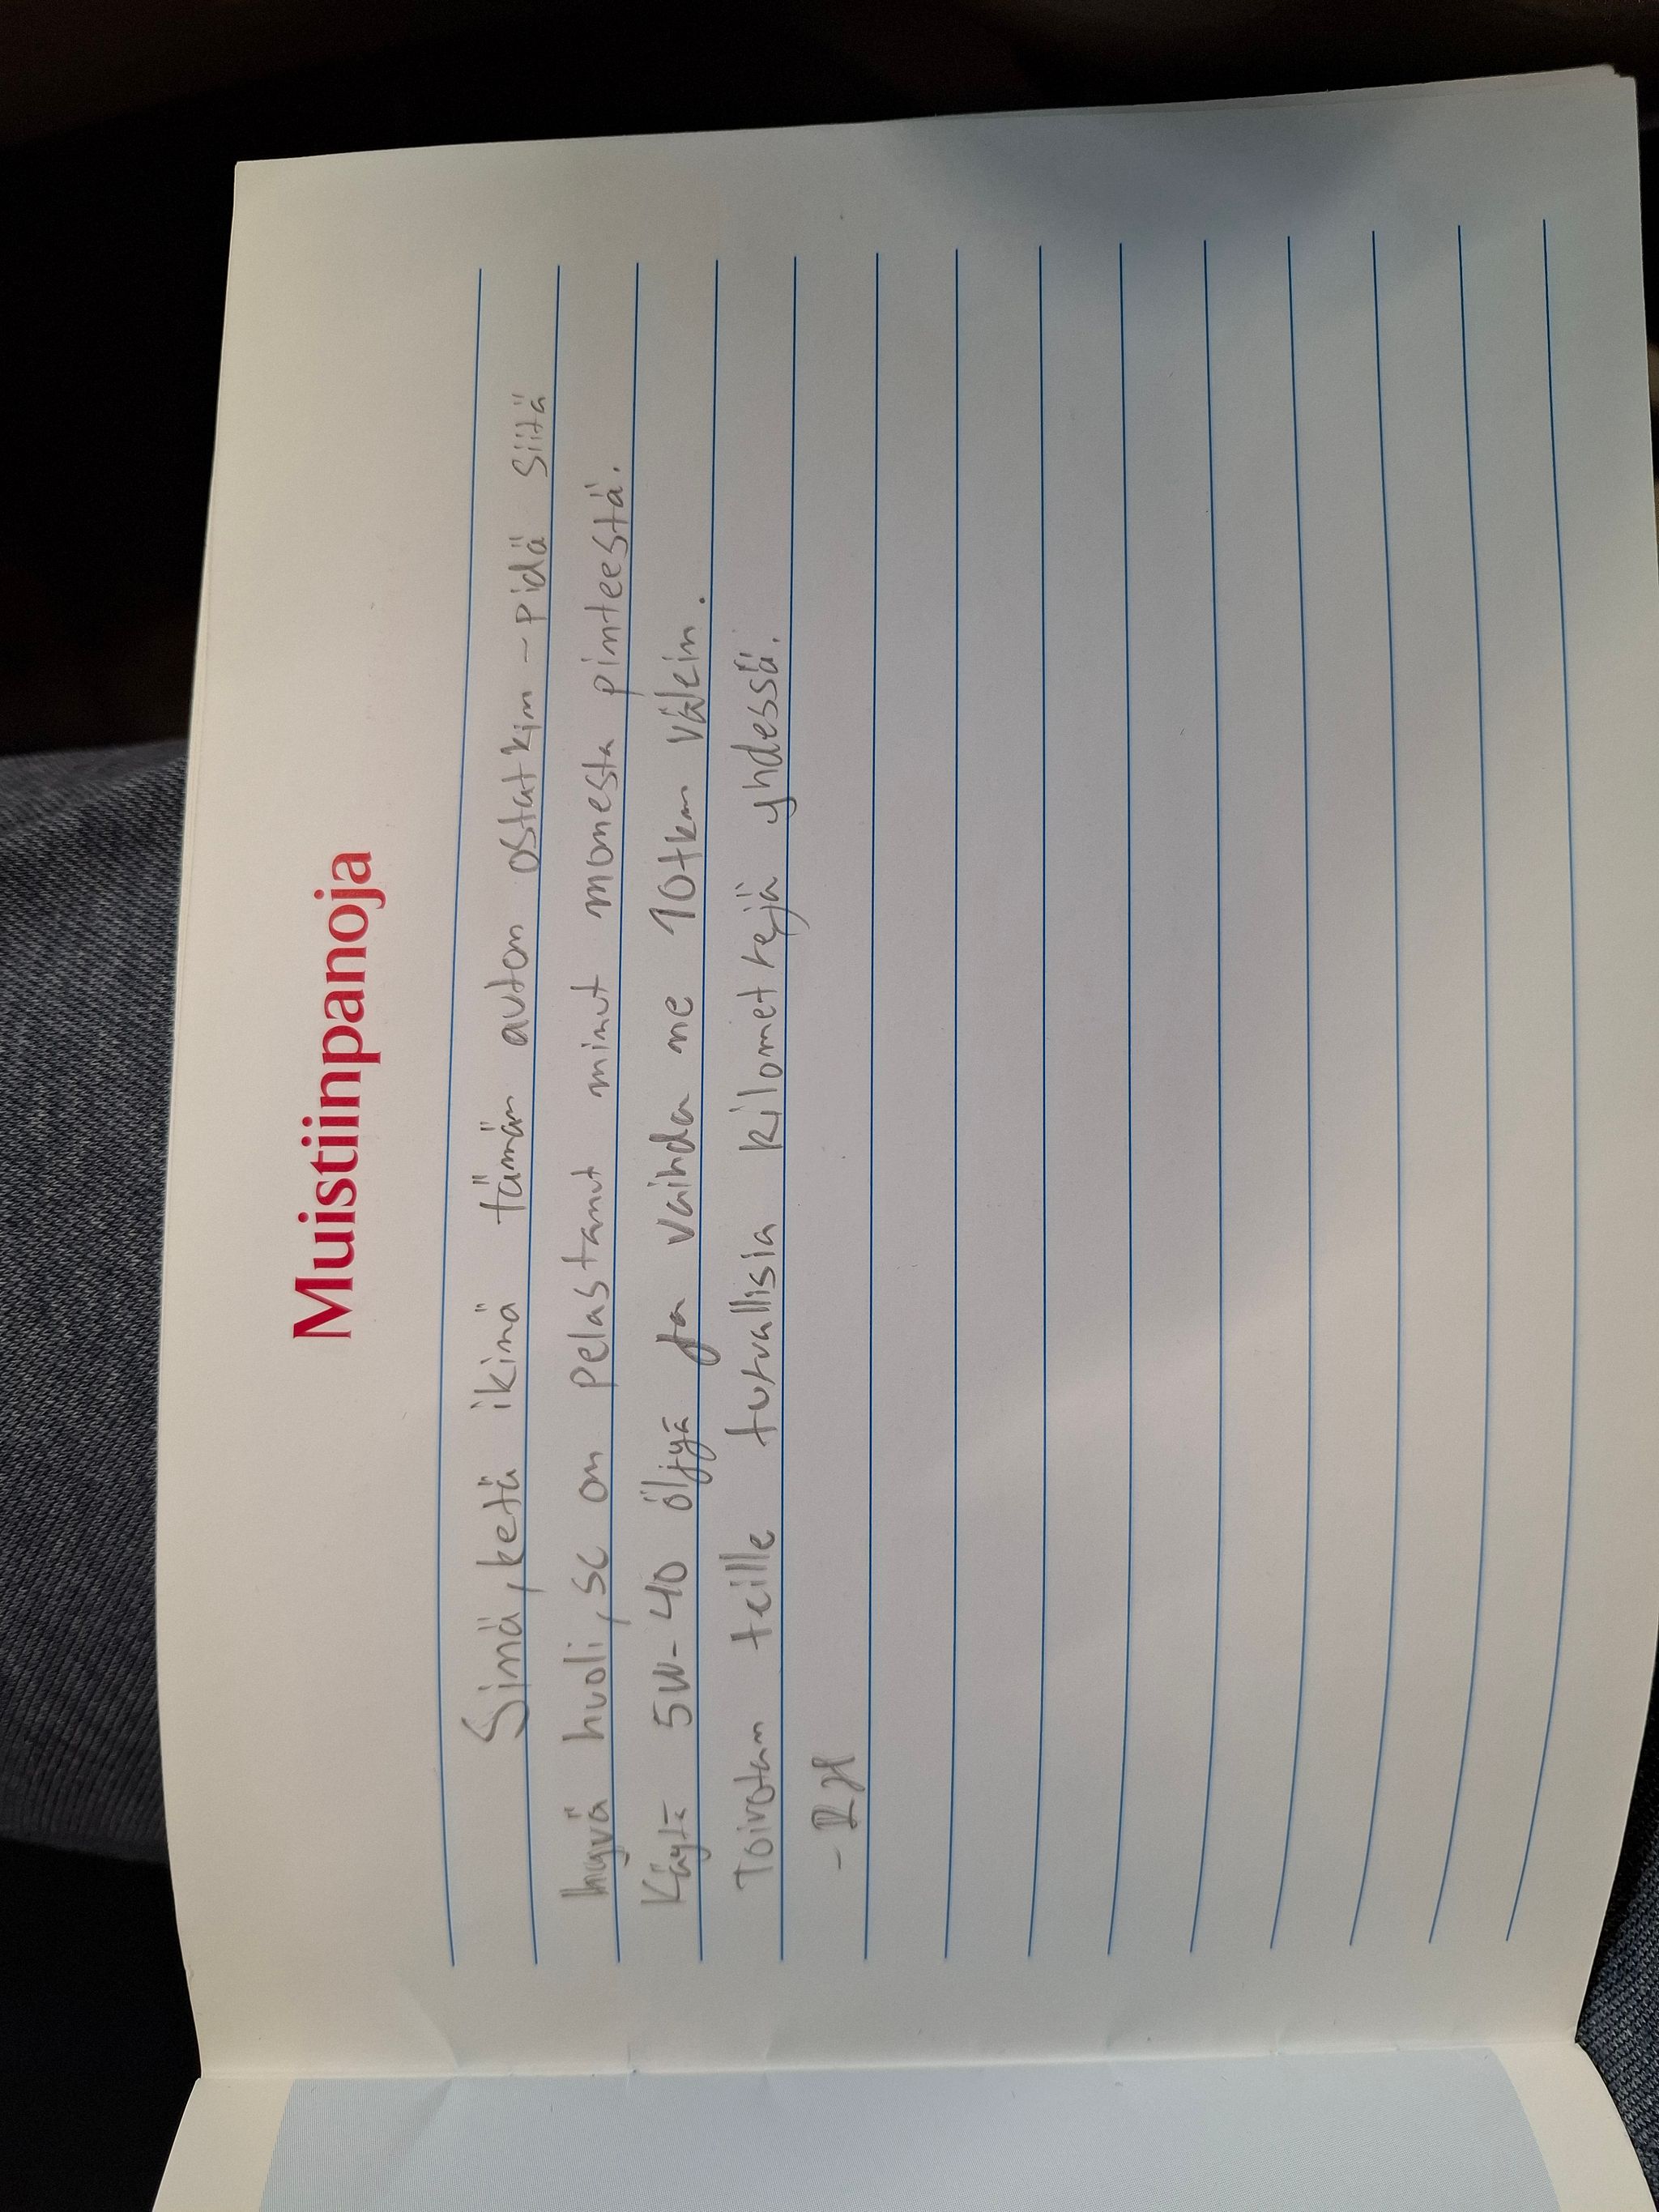 Muistiinpanoja
Sinä, ketä ikinä tämän auton ostatkin - pidä siitä
hyvä huoli, se on pelastanut minut monesta pinteestä.
Käytä 5W-40 öljyä ja vaihda ne 10tkm välein.
Toivotan teille turvallisia kilometrejä yhdessä.
- RH